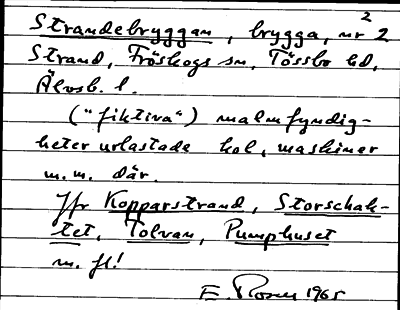 Strandebryggan, brygga, nr 2 2
Strand, Fröskogs sn, Tössbo hd,
Älvsb. l.
("fiktiva") malmfyndig-
heter urlastade kol, maskiner
m.m. där.
Jfr Kopparstrand, Storschak-
tet, Tolvan, Pumphuset
m. fl!
E. Rosen 1965